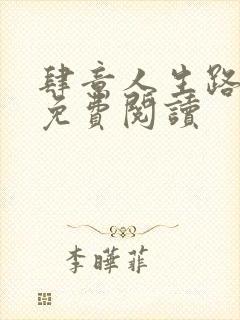 肆意人生路
免費閱讀
李曄菲